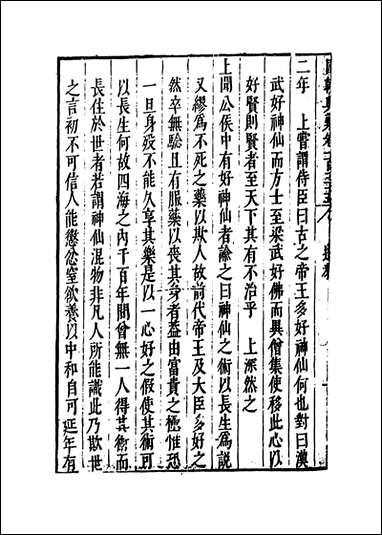 二年　上嘗謂侍臣曰古之帝王多好神仙何也對曰漢
武好神仙而方士至梁武好佛而異僧集使移此心以
好賢則賢者至天下其有不治乎　上深然之
上聞公侯中有好神仙者諭之曰神仙之術以長生為說
又繆為不死之藥以欺人故前代帝王及大臣多好之
然卒無驗且有服藥以喪其身者蓋由富貴之極惟恐
一旦身歿不能久享其樂是以一心好之假使其術可
以長生何故四海之內千百年間曾無一人得其術而
長住於世者若謂神仙混物非凡人所能識此乃欺世
之言初不可信人能懲忿窒欲養以中和自可延年有